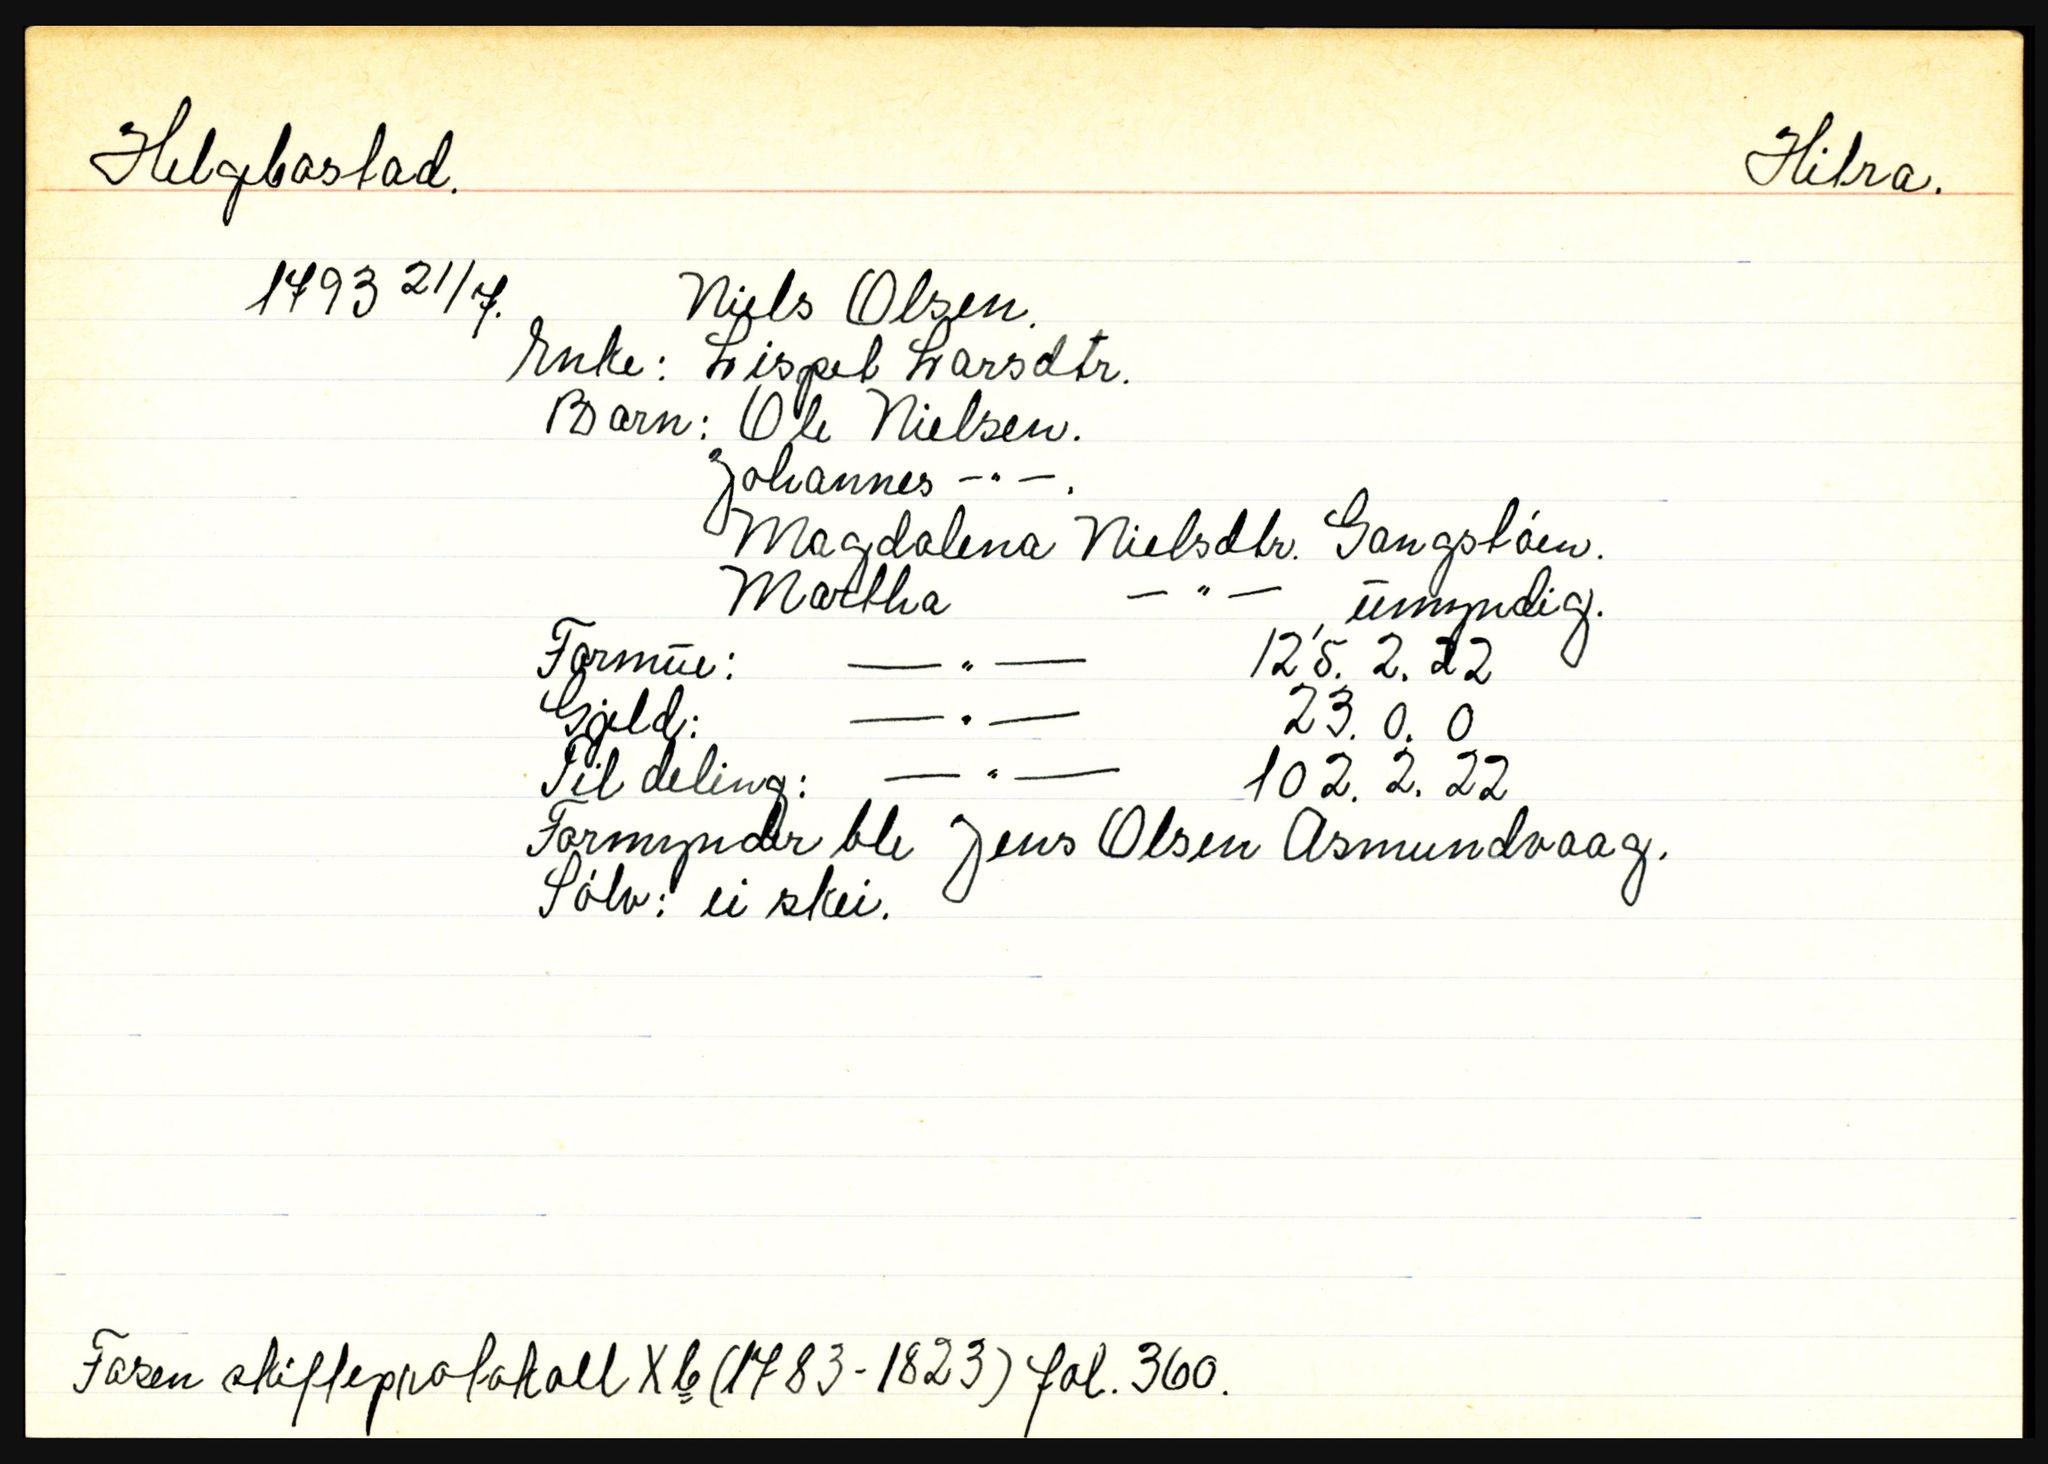 Helgbostad. Hitra.
1793 21/7. Niels Olsen.
Enke: Lispet Larsdtr.
Barn: Ole Nielsen.
Johannes —"—.
Magdalena Nielsdtr. Gangstóen.
Martha —"— , umyndig.
Formue: —"— 125. 2. 22
Gjeld: —"— 23. 0. 0
Til deling: —"— 102. 2. 22
Formynder ble Jens Olsen Asmundvaag.
Sólv: ei skei.
Fosen skifteprotokoll Xb (1783-1823) fol. 360.